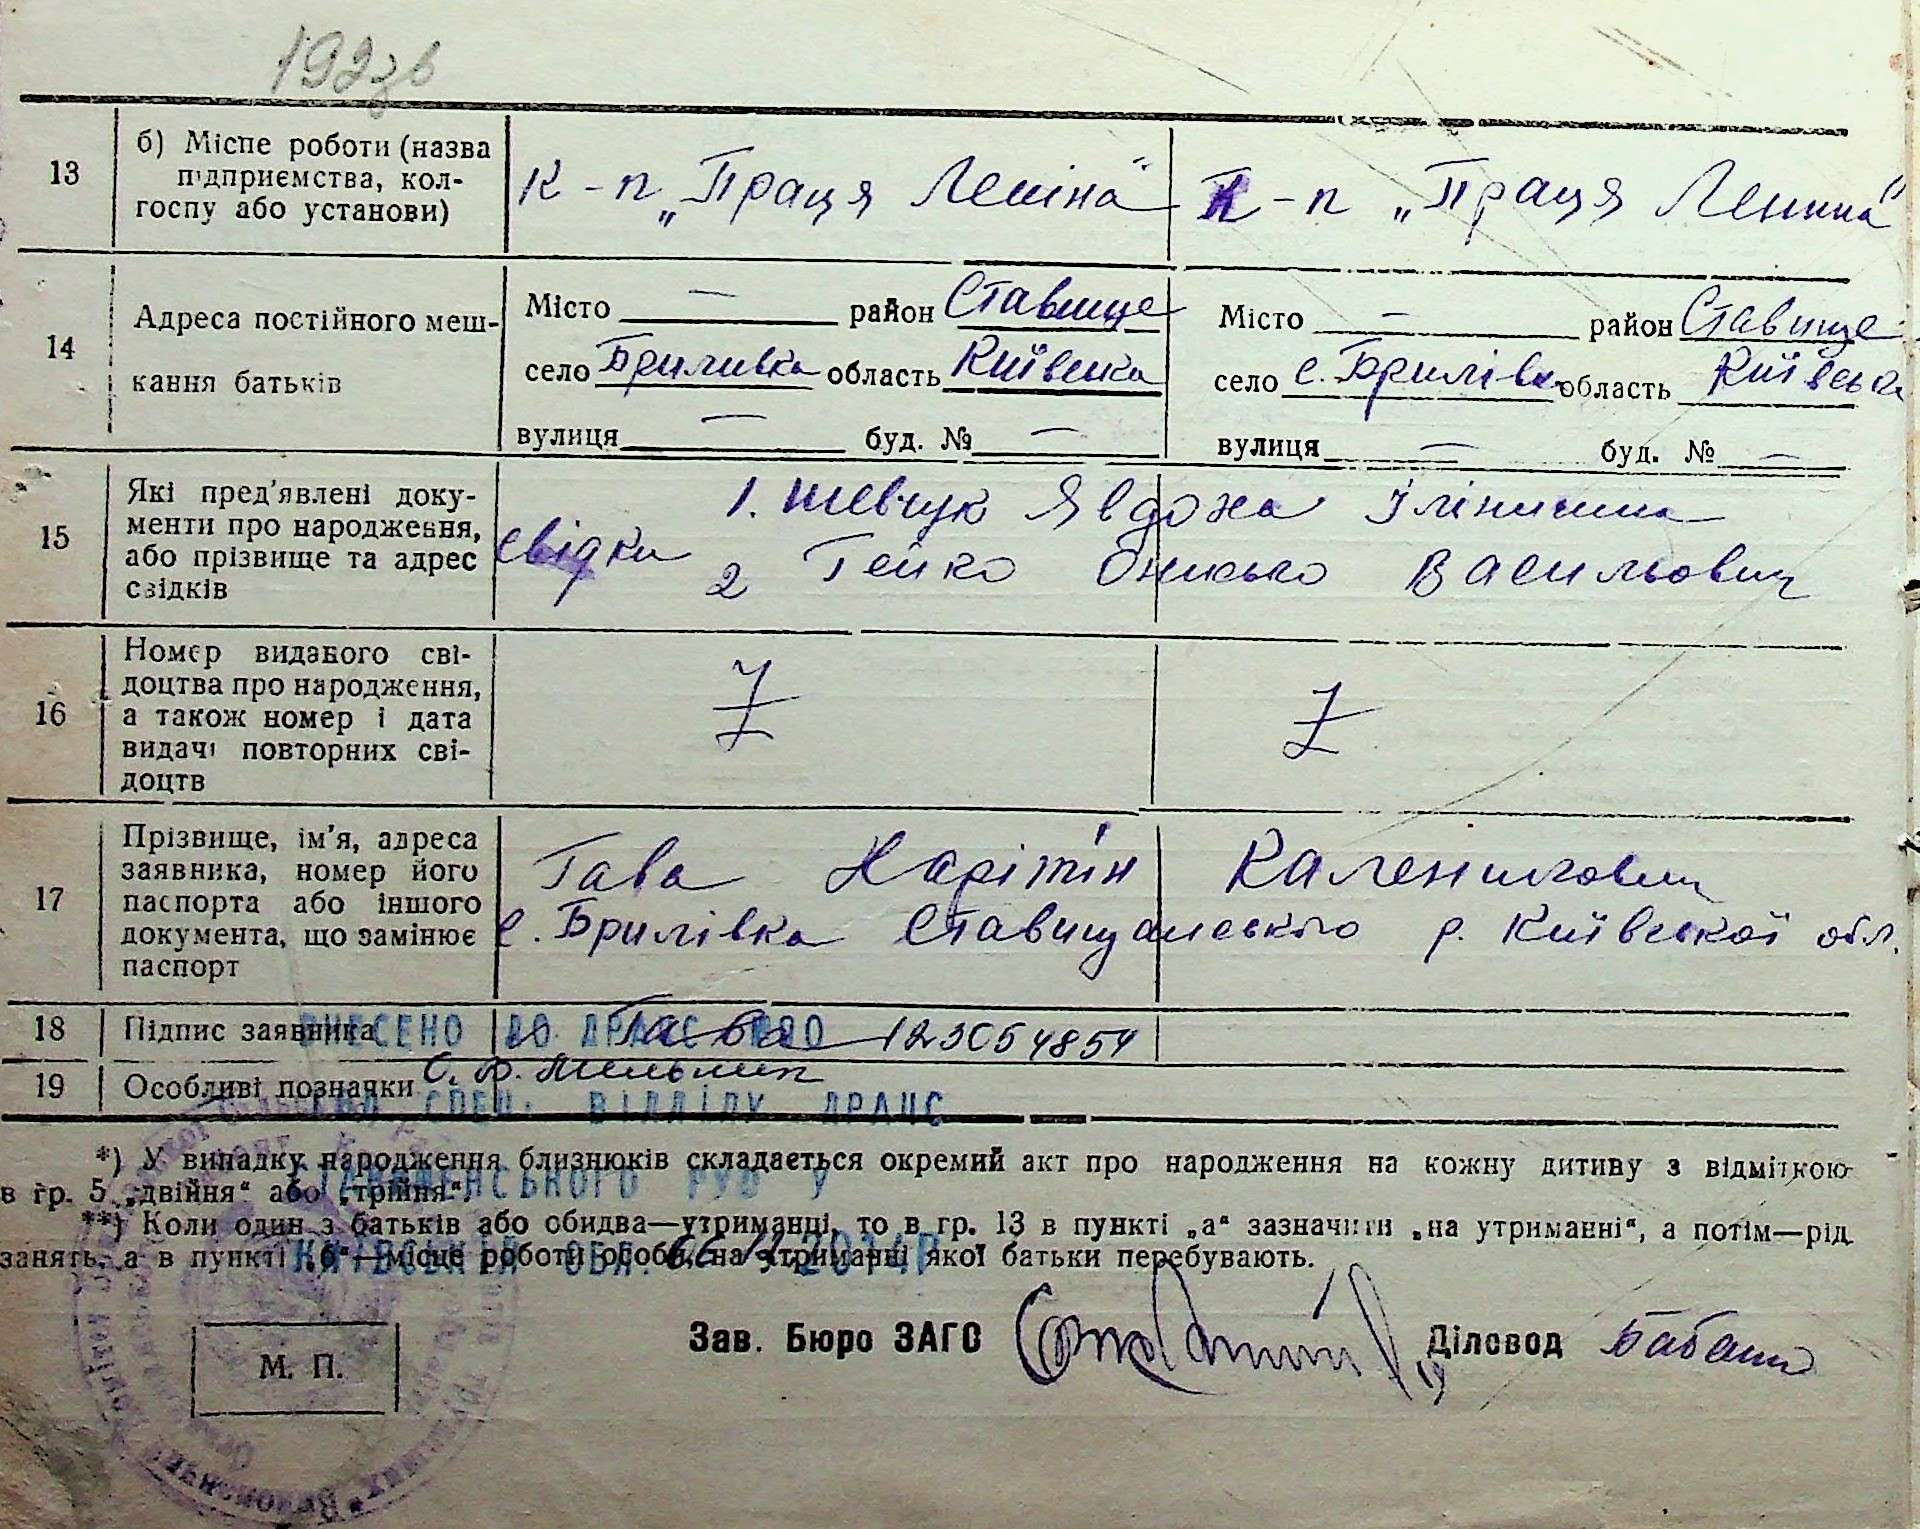 192зв
13 б) Місце роботи (назва
підприємства, кол-
госпу або установи)
К-п „Праця Леніна“ К-п „Праця Леніна“
14 Адреса постійного меш-
кання батьків
Місто — район Ставище Місто — район Ставище
село Брилівка область Київська село с. Брилівка область Київська
вулиця — буд. № — вулиця — буд. № —
15 Які пред'явлені доку-
менти про народження,
або прізвище та адрес
свідків
свідки 1. Шевчук Явдоха
2 Гейко Онисько Васильович
16 Номер виданого сві-
доцтва про народження,
а також номер і дата
видачі повторних сві-
доцтв
17 Прізвище, ім'я, адреса
заявника, номер його
паспорта або іншого
документа, що замінює
паспорт
Гава Харітін Каленикович
с. Брилівка Ставищанського р. Київської обл.
18 Підпис заявника Гава
ВНЕСЕНО ДО ДРАЦС №00 123054854
19 Особливі позначки
СПЕЦ. ВІДДІЛУ ДРАЦС
*) У випадку народження близнюків складається окремий акт про народження на кожну дитину з відміткою
в гр. 5 „двійня“ або „трійня“.
**) Коли один з батьків або обидва—утриманці, то в гр. 13 в пункті „а“ зазначити „на утриманні“, а потім—рід
занять, а в пункті „б“—місце роботи особи, на утриманні якої батьки перебувають.
КИЇВСЬКІЙ ОБЛ.
Зав. Бюро ЗАГС Діловод
М. П.